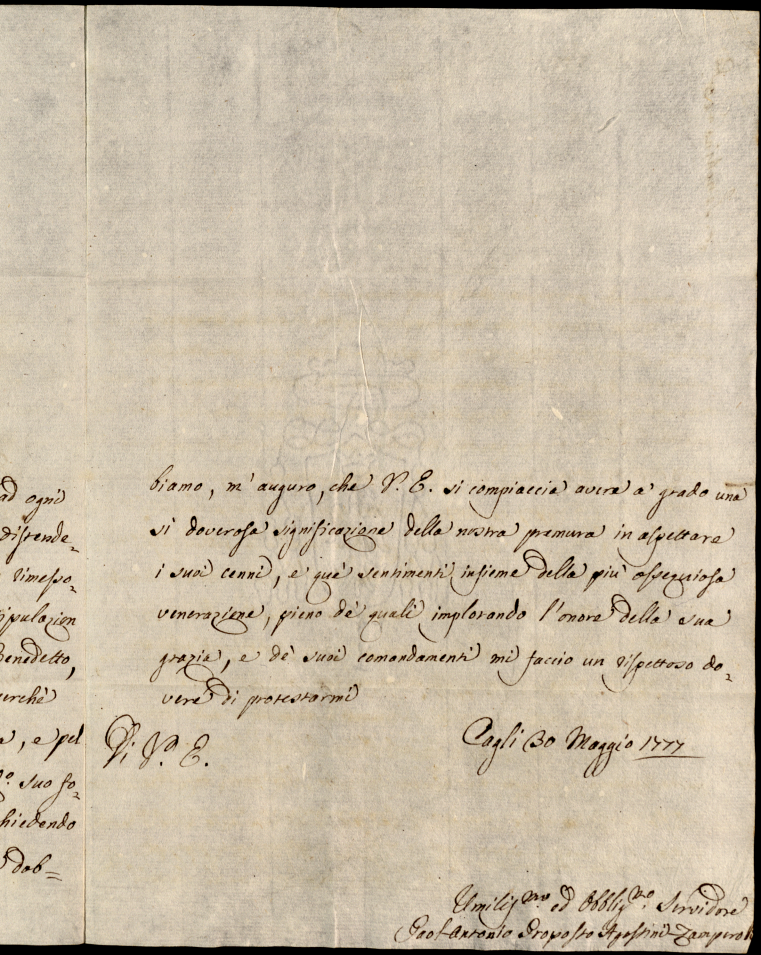 ad ogni
distende=
rimesso=
ipulazion
Benedetto,
erchè
a, e pel
suo fo=
hiedendo
dob=
biamo, m'auguro, che V. E. si compiaccia avere a' grado una
sì doverosa significazione della nostra premura in aspettare
i suoi cenni, e que' sentimenti insieme della più ossequiosa
venerazione, pieno de' quali implorando l'onore della sua
grazia, e de' suoi comandamenti mi faccio un rispettoso do=
vere di protestarmi
Di V. E.
Cagli 30 Maggio 1777
Umiliss.mo ed Obblig.mo Servidore
Antonio Proposto Agostini Zamperol